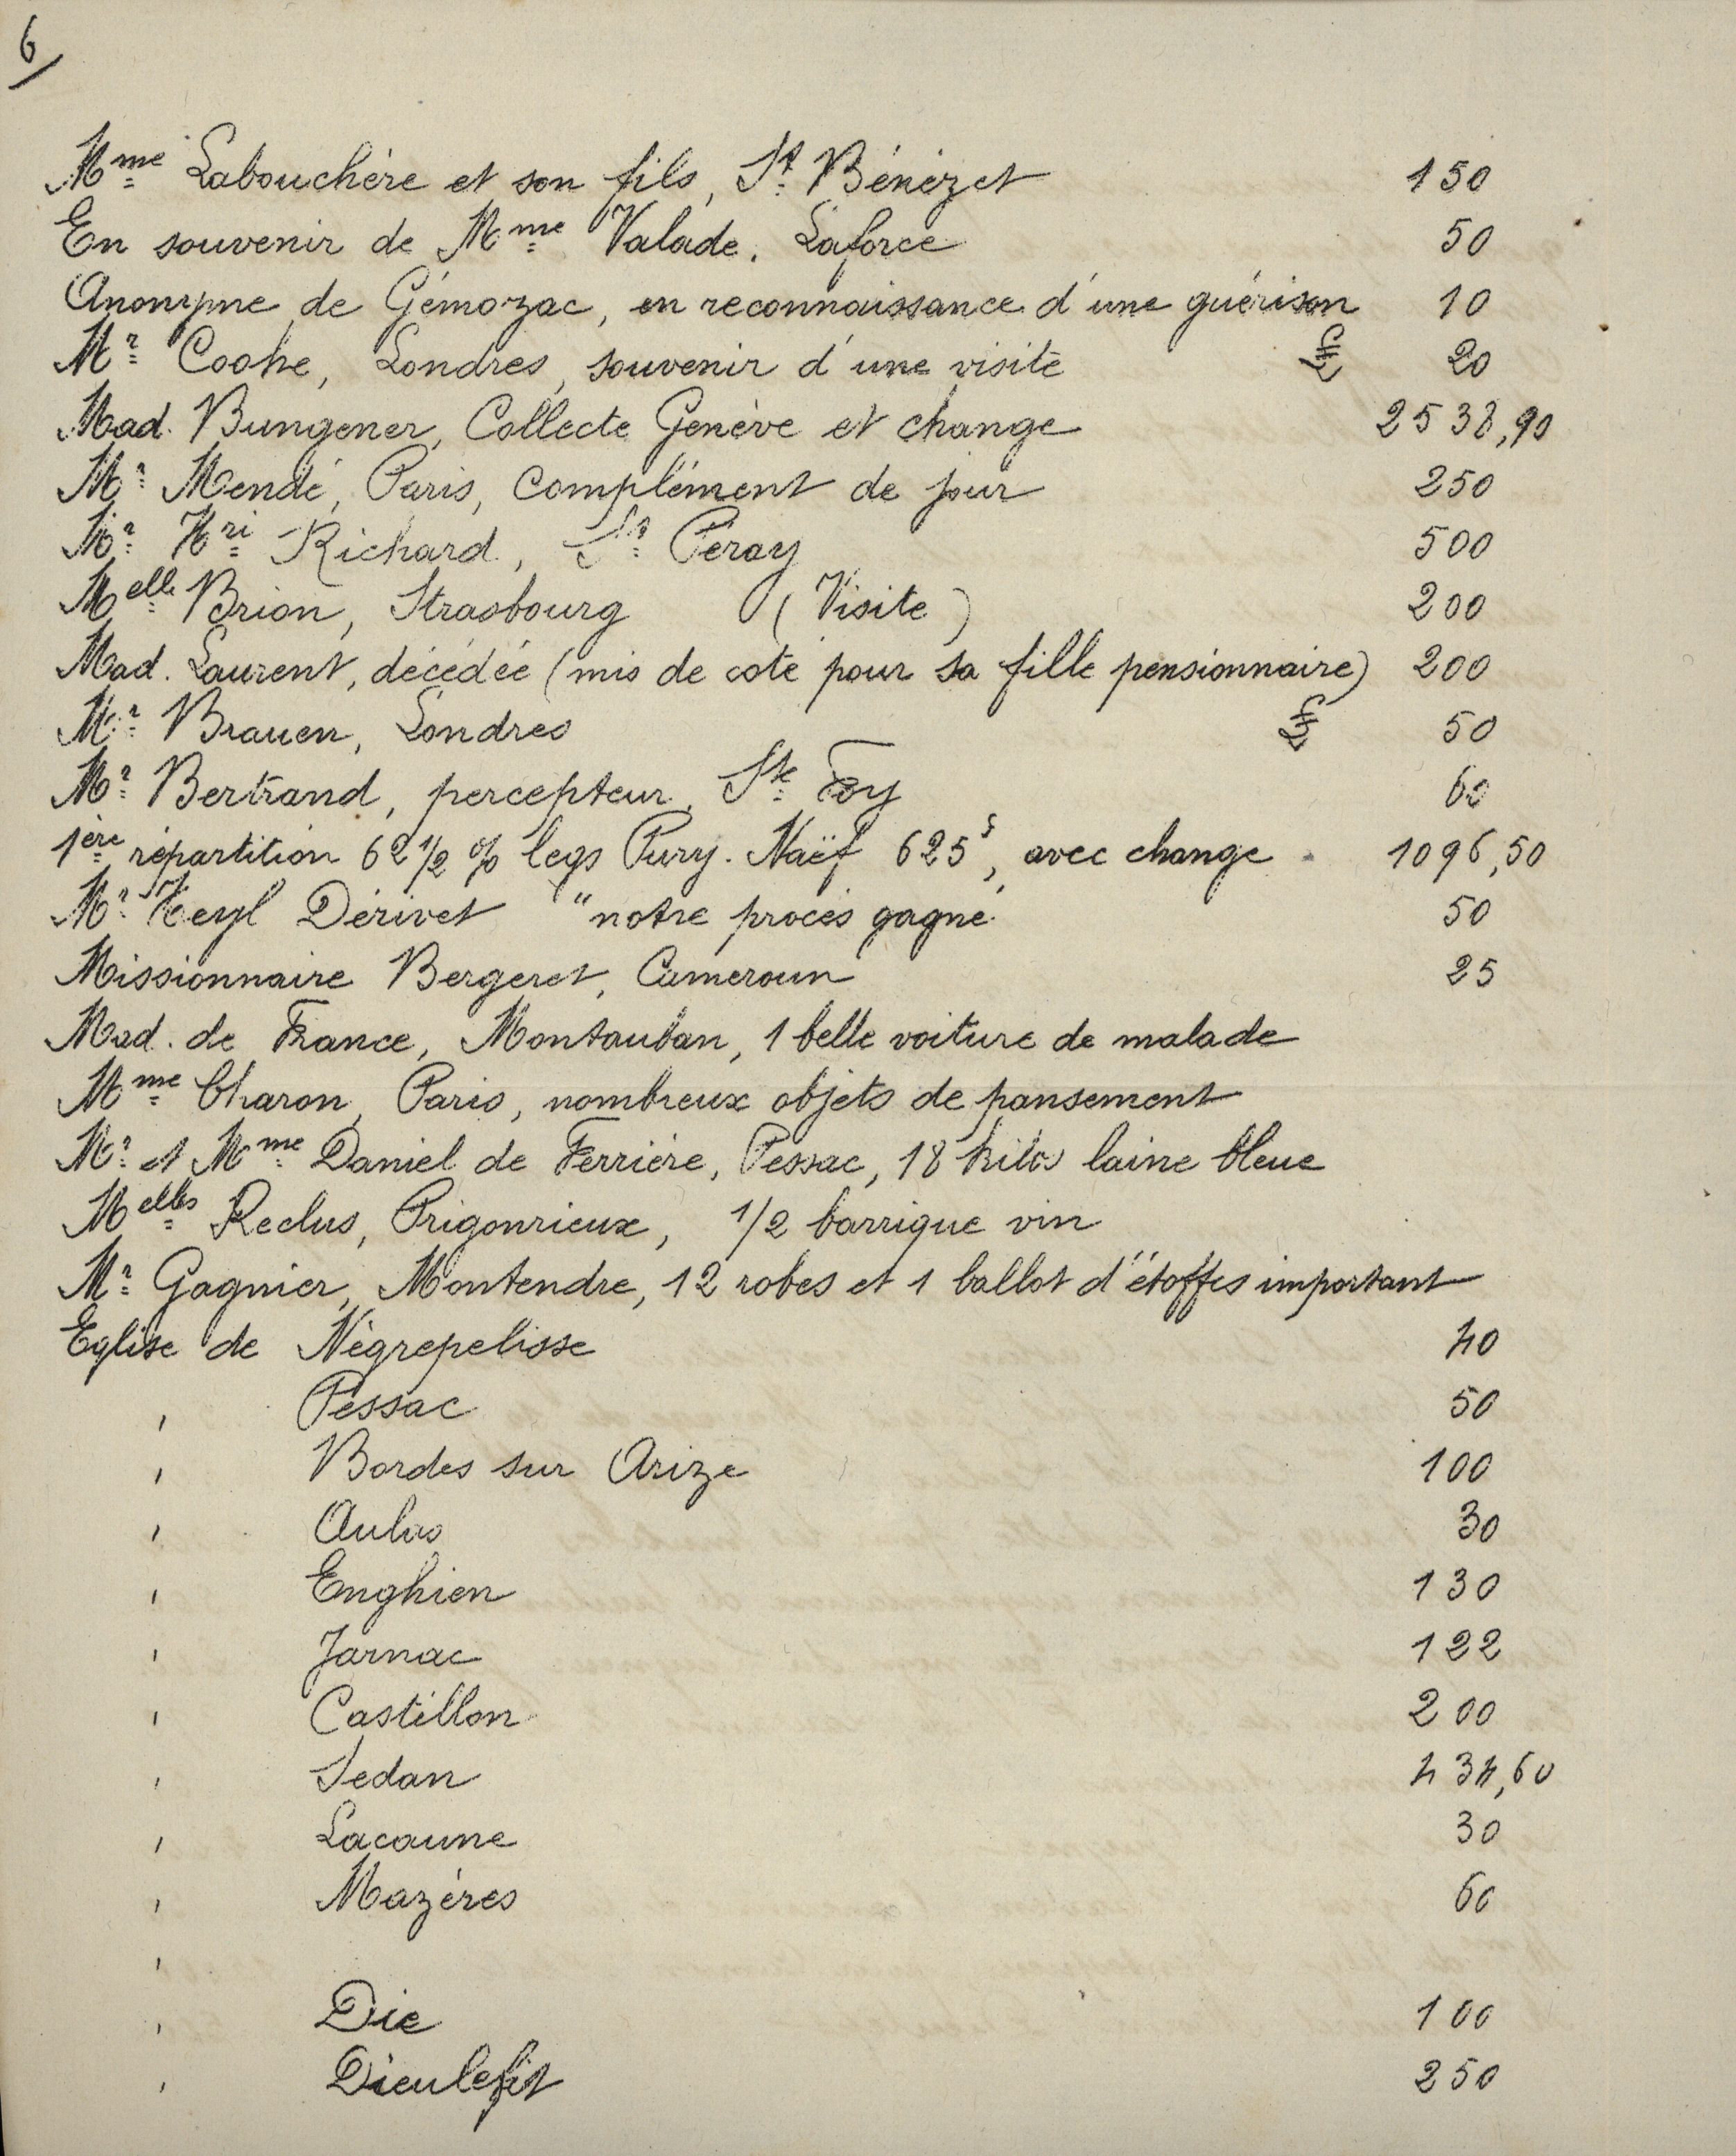 6/
Mme Labouchère et son fils, St Bénézet 150
En souvenir de Mme Valade, Laforce 50
Anonyme de Gémozac, en reconnaissance d'une guérison 10
Mr Cooke, Londres, souvenir d'une visite £ 20
Mad. Bungener, Collecte Genève et change 2538,90
Mr Mendé, Paris, complément de jour 250
Mr Hri Richard, St Péray 500
Melle Brion, Strasbourg (Visite) 200
Mad. Laurent, décédée (mis de coté pour sa fille pensionnaire) 200
Mr Brauen, Londres £ 50
Mr Bertrand, percepteur, Ste Foy 60
1ère répartition 62 1/2 % legs Pury. Naëf 625 f, avec change 1096,50
Mr Heyl Dérivet "notre procès gagné" 50
Missionnaire Bergeret, Cameroun 25
Mad. de France, Montauban, 1 belle voiture de malade
Mme Charon, Paris, nombreux objets de pansement
Mr et Mme Daniel de Ferrière, Pessac, 18 kilos laine bleue
Melles Reclus, Prigonrieux, 1/2 barrique vin
Mr Gagnier, Montendre, 12 robes et 1 ballot d'étoffes important
Eglise de Nègrepelisse 40
" Pessac 50
" Bordes sur Arize 100
" Aulas 30
" Enghien 130
" Jarnac 122
" Castillon 200
" Sedan 434,60
" Lacaune 30
" Mazères 60
"
" Die 100
" Dieulefit 250